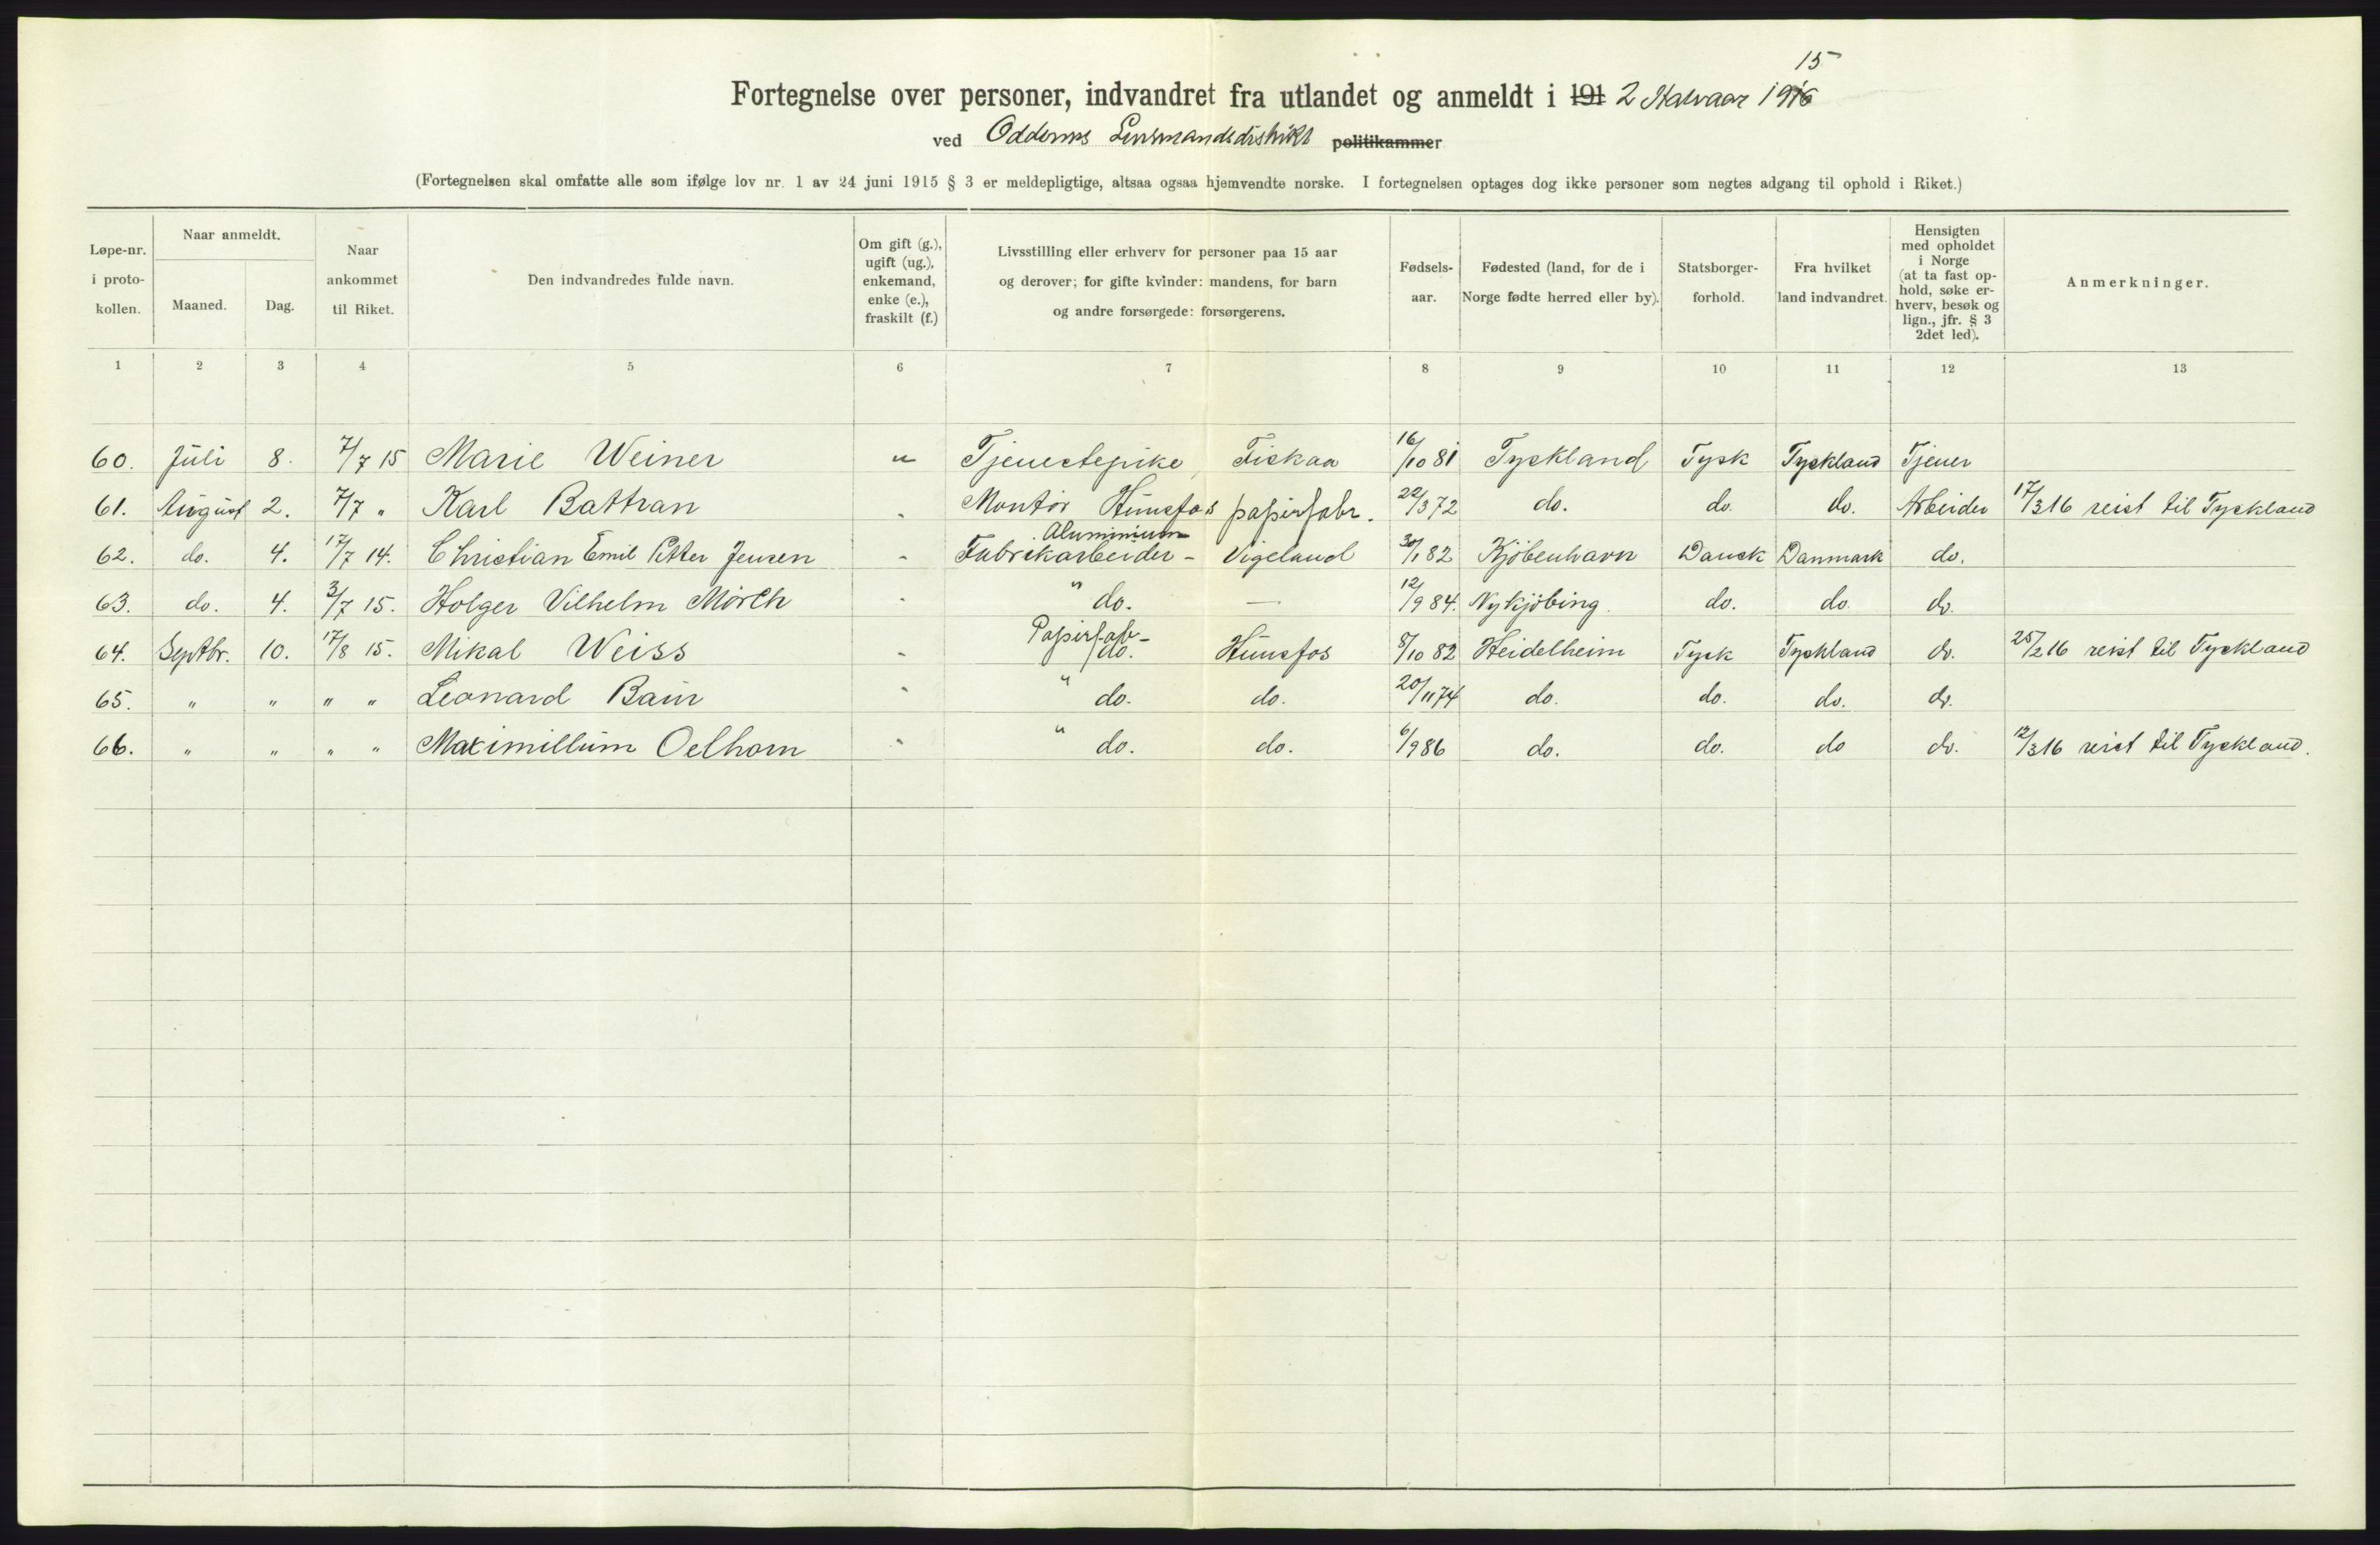 15
Fortegnelse over personer, indvandret fra utlandet og anmeldt i 191 2 Halvaar 1916
ved Oddernes Lensmandsdistrikt politikammer
(Fortegnelsen skal omfatte alle som ifølge lov nr. 1 av 24 juni 1915 § 3 er meldepligtige, altsaa ogsaa hjemvendte norske. I fortegnelsen optages dog ikke personer som negtes adgang til ophold i Riket.)
Løpe-nr. i proto-kollen.
Naar anmeldt.
Maaned.
Dag.
Naar ankommet til Riket.
Den indvandredes fulde navn.
Om gift (g.), ugift (ug.), enkemand, enke (e.), fraskilt (f.)
Livsstilling eller erhverv for personer paa 15 aar og derover; for gifte kvinder: mandens, for barn og andre forsørgede: forsørgerens.
Fødsels-aar.
Fødested (land, for de i Norge fødte herred eller by).
Statsborger-forhold.
Fra hvilket land indvandret.
Hensigten med opholdet i Norge (at ta fast op-hold, søke er-hverv, besøk og lign., jfr. § 3 2det led).
Anmerkninger.
1 2 3 4 5 6 7 8 9 10 11 12 13
60. Juli 8. 7/7 15 Marie Weiner " Tjenestepike, Fiskaa 16/10 81 Tyskland Tysk Tyskland Tjener
61. August 2. 7/7 " Karl Battran - Montör Hunsfos papirfabr. 22/3 72 do. do. do. Arbeider 17/3 16 reist til Tyskland
Aluminium
62. do. 4. 17/7 14. Christian Emil Petter Jensen - Fabrikarbeider - Vigeland 30/1 82 Kjöbenhavn Dansk Danmark do.
63. do. 4. 3/7 15. Holger Vilhelm Mörch - " do. — 12/9 84. Nykjöbing. do. do. do.
Papirfab-
64. Septbr. 10. 17/8 15. Mikal Weiss - do. Hunsfos 8/10 82 Heidelheim Tysk Tyskland do. 25/2 16 reist til Tyskland
65. " " " " Leonard Baur - " do. do. 20/11 74 do. do. do. do.
66. " " " " Maximillum Oelhorn - " do. do. 6/9 86 do. do. do do. 12/3 16 reist til Tyskland.